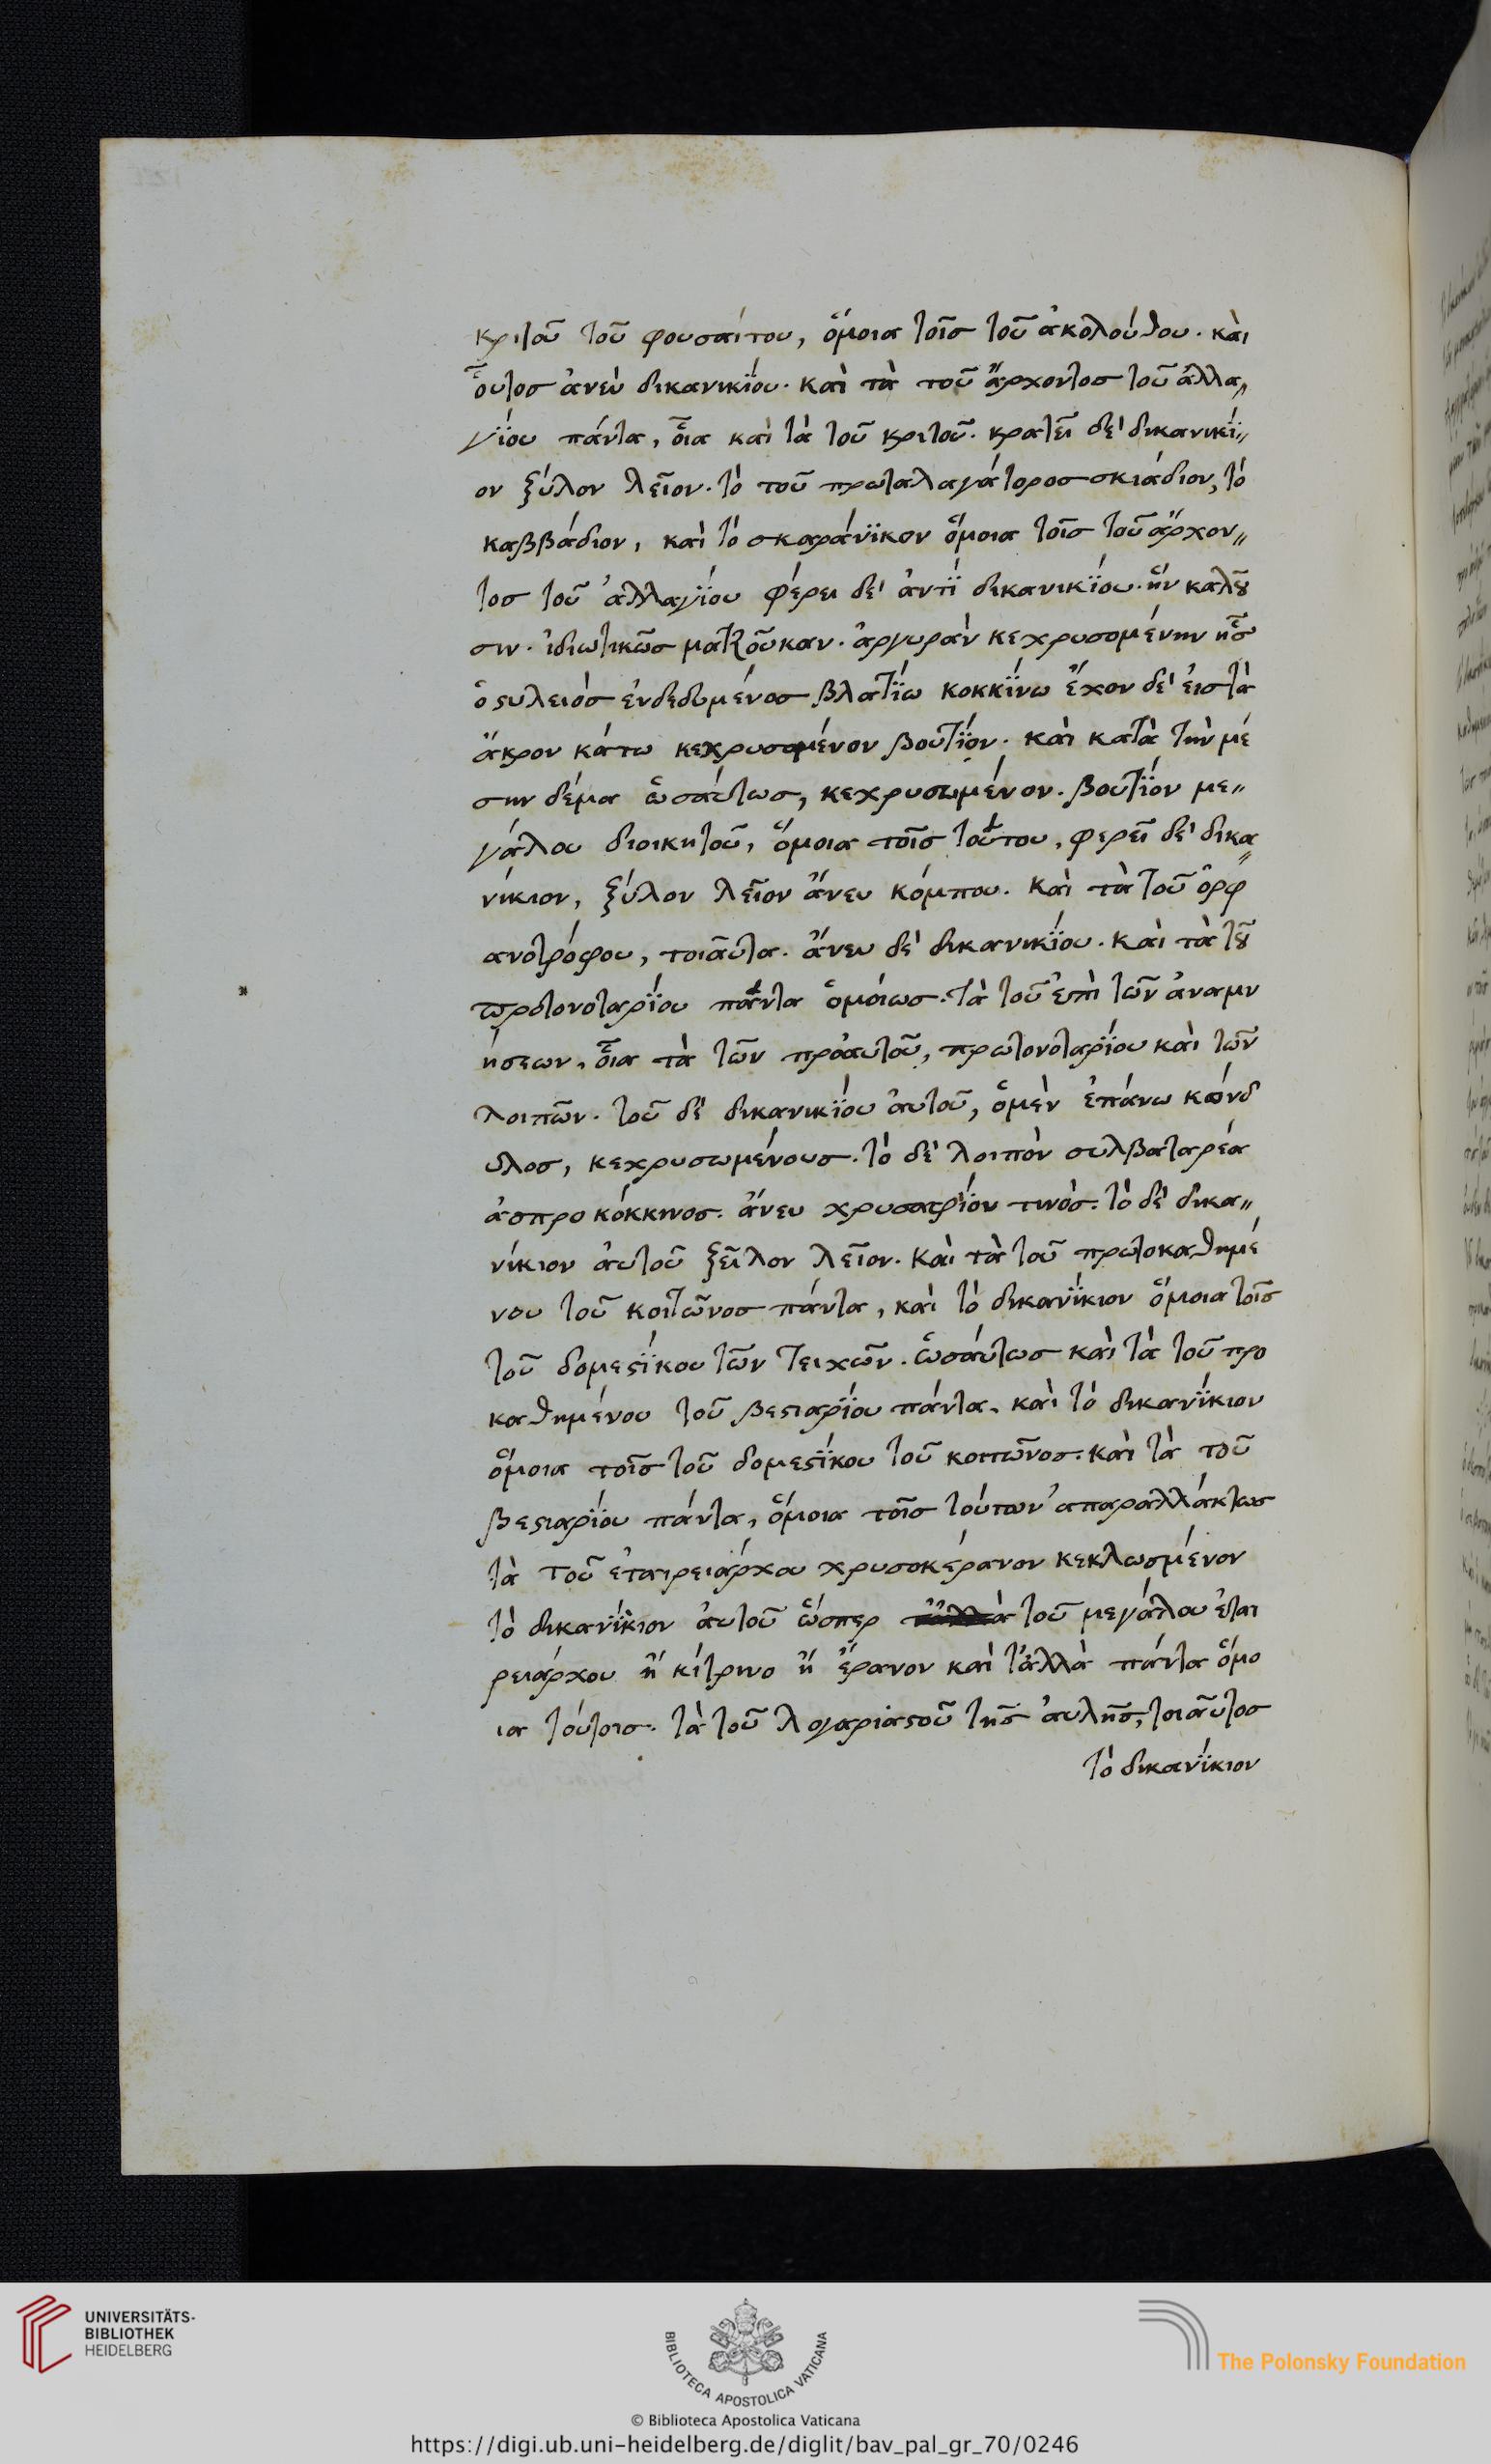 κριτοῦ τοῦ φουσαίτου, ὅμοια τοῖσ τοῦ ἀκολούθου. καὶ
οὗτοσ ἀνεὺ δικανικΐου. καὶ τὰ τοῦ ἄρχοντοσ τοῦ ἀλλα〃
γΐου πάντα, οἷα καὶ τὰ τοῦ κριτοῦ. κρατεῖ δὲ δικανικΐ〃
ον ξύλον λεῖον. τὸ τοῦ πρωταλαγάτοροσ σκιάδιον, τὸ
καββάδιον, καὶ τὸ σκαράνϊκον ὅμοια τοῖσ τοῦ ἄρχον〃
τοσ τοῦ ἀλλαγΐου φέρει δὲ ἀντΐ δικανικΐου. ἣν καλοῦ
σιν. ἰδιωτικῶσ ματζοῦκαν. ἀργυρὰν κεχρυσομένην ἧσ
ὁ ϛυλειόσ ἐνδεδυμένοσ βλατΐω κοκκΐνω ἔχον δὲ ἐισ τὰ
ἄκρον κάτω κεχρυσομένον βουτΐον. καὶ κατὰ τὴν μέ
σην δέμα ὡσάυτωσ, κεχρυσωμένον. βουτΐον με〃
γάλου διοικητοῦ, ὅμοια τοῖσ τούτου, φερεῖ δὲ δικα〃
νίκιον, ξύλον λεῖον ἄνευ κόμπου. καὶ τὰ τοῦ ὀρφ
ανοτρόφου, τοιᾶυτα. ἄνευ δὲ δικανικΐου. καὶ τὰ τοῦ
πρωτονοταρΐου πάντα ὁμοίωσ. τὰ τοῦ ἐπὶ τῶν ἀναμν
ήσεων, οἷα τὰ τῶν πρὸ ἀυτοῦ, πρωτονοταρΐου καὶ τῶν
λοιπῶν. τοῦ δὲ δικανικΐου ἀυτοῦ, ὁ μὲν ἐπάνω κόνδ
υλοσ, κεχρυσωμένουσ. τὸ δὲ λοιπὸν συλβαταρέα
ἀσπρο κόκκινοσ. ἄνευ χρυσαφΐου τινόσ. τὸ δὲ δικα〃
νίκιον ἀυτοῦ ξῦλον λεῖον. καὶ τὰ τοῦ πρωτοκαθημέ
νου τοῦ κοιτῶνοσ πάντα, καὶ τὸ δικανΐκιον ὅμοια τοῖσ
τοῦ δομεϛΐκου τῶν τειχῶν. ὡσάυτωσ καὶ τὰ τοῦ προ
καθημένου τοῦ βεϛιαρΐου πάντα. καὶ τὸ δικανΐκιον
ὅμοια τοῖσ τοῦ δομεϛΐκου τοῦ κοιτῶνοσ. καὶ τὰ τοῦ
βεϛιαρΐου πάντα, ὅμοια τοῖσ τούτων ἀπαραλλάκτωσ
τὰ τοῦ ἑταιρειάρχου χρυσοκέρανον κεκλωσμένον
τὸ δικανΐκιον ἀυτοῦ ὥσπερ τοῦ μεγάλου ἑται
ρειάρχου ἢ κίτρινο ἢ ἔρανον καὶ τἀλλὰ πάντα ὅμο
ια τούτοισ. τὰ τοῦ λογαριαϛοῦ τῆσ ἀυλῆσ, τοιᾶυτοσ
τὸ δικανΐκιον
UNIVERSITÄTS-
BIBLIOTHEK
HEIDELBERG
BIBLIOTECA APOSTOLICA VATICANA
The Polonsky Foundation
© Biblioteca Apostolica Vaticana
https://digi.ub.uni-heidelberg.de/diglit/bav_pal_gr_70/0246